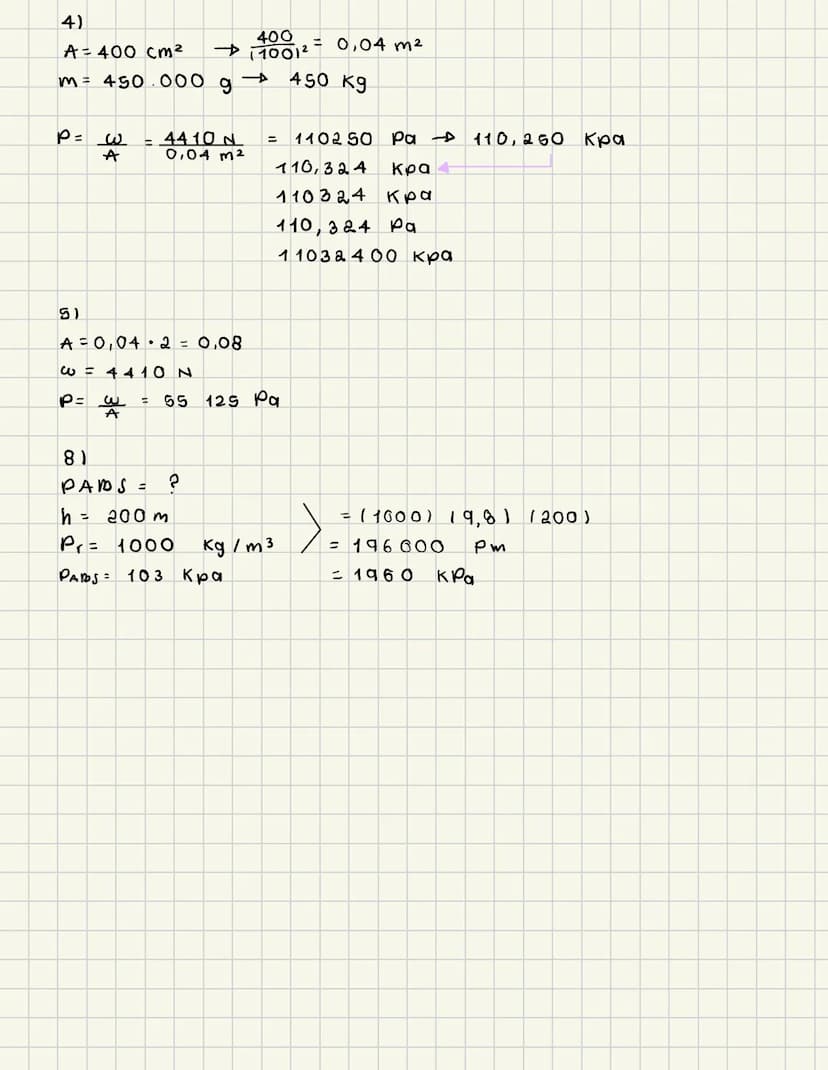 4)
A = 400 cm² → 400/(100)² = 0,04 m²
m = 450.000 g → 450 Kg
P = ω/A = 4410 N/0,04 m² = 110250 Pa → 110,250 Kpa
110,324 Kpa
110324 Kpa
110,324 Pa
11032400 Kpa
5)
A = 0,04 · 2 = 0,08
ω = 4410 N
P = ω/A = 55 125 Pa
8)
PABS = ?
h = 200 m
= (1000) (9,8) (200)
Pr = 1000 Kg/m³
= 196 000 Pm
PABS = 103 Kpa
= 1960 KPa